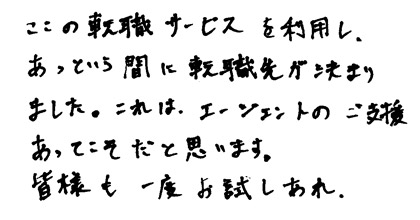 ここの転職サービスを利用し、
あっという間に転職先が決まり
ました。これは、エージェントのご支援
あってこそだと思います。
皆様も一度お試しあれ。